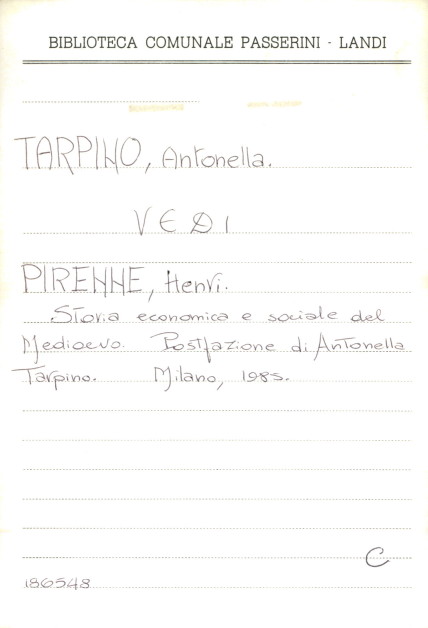 BIBLIOTECA COMUNALE PASSERINI - LANDI
TARPINO, Antonella.
VEDI
PIRENNE, Henri.
Storia economica e sociale del
Medioevo. Postfazione di Antonella
Tarpino. Milano, 1985.
C
186548